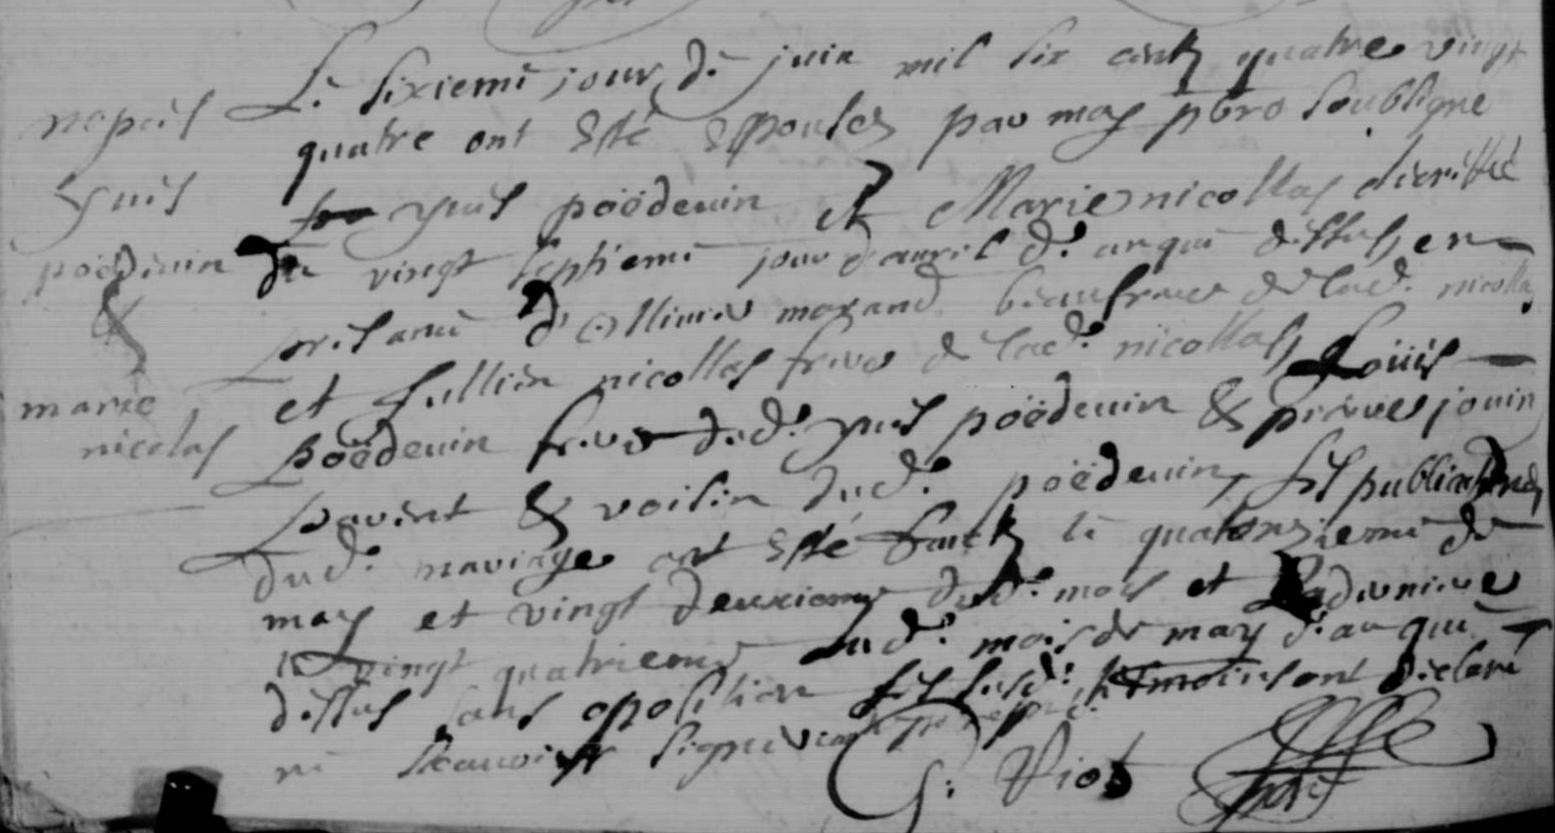 nopcis
yuis
poëdeuin
&
marie
nicolas
Le sixieme jour de juin mil six cents quatre vingt
quatre ont esté espousés par moy pbre soubsigné
yuis poëdeuin et Marie nicollas
du vingt septieme jour d'auril d. an que dessus, en
presance d'Olliuier morand beaufrere de lad. nicollas
et Jullien nicollas frere de lad. nicollas, Louis
poëdeuin frere dud. yuis poëdeuin & pierre jouin
parent & voisin dud. poëdeuin,
dud. mariage ont esté faicts le quatorzieme de
may et vingt deuxieme dud. mois et la derniere
le vingt quatrieme dud. mois de may d. an que
dessus sans opposition lesd. temoins ont declaré
ne scauoir signer
G. Viot